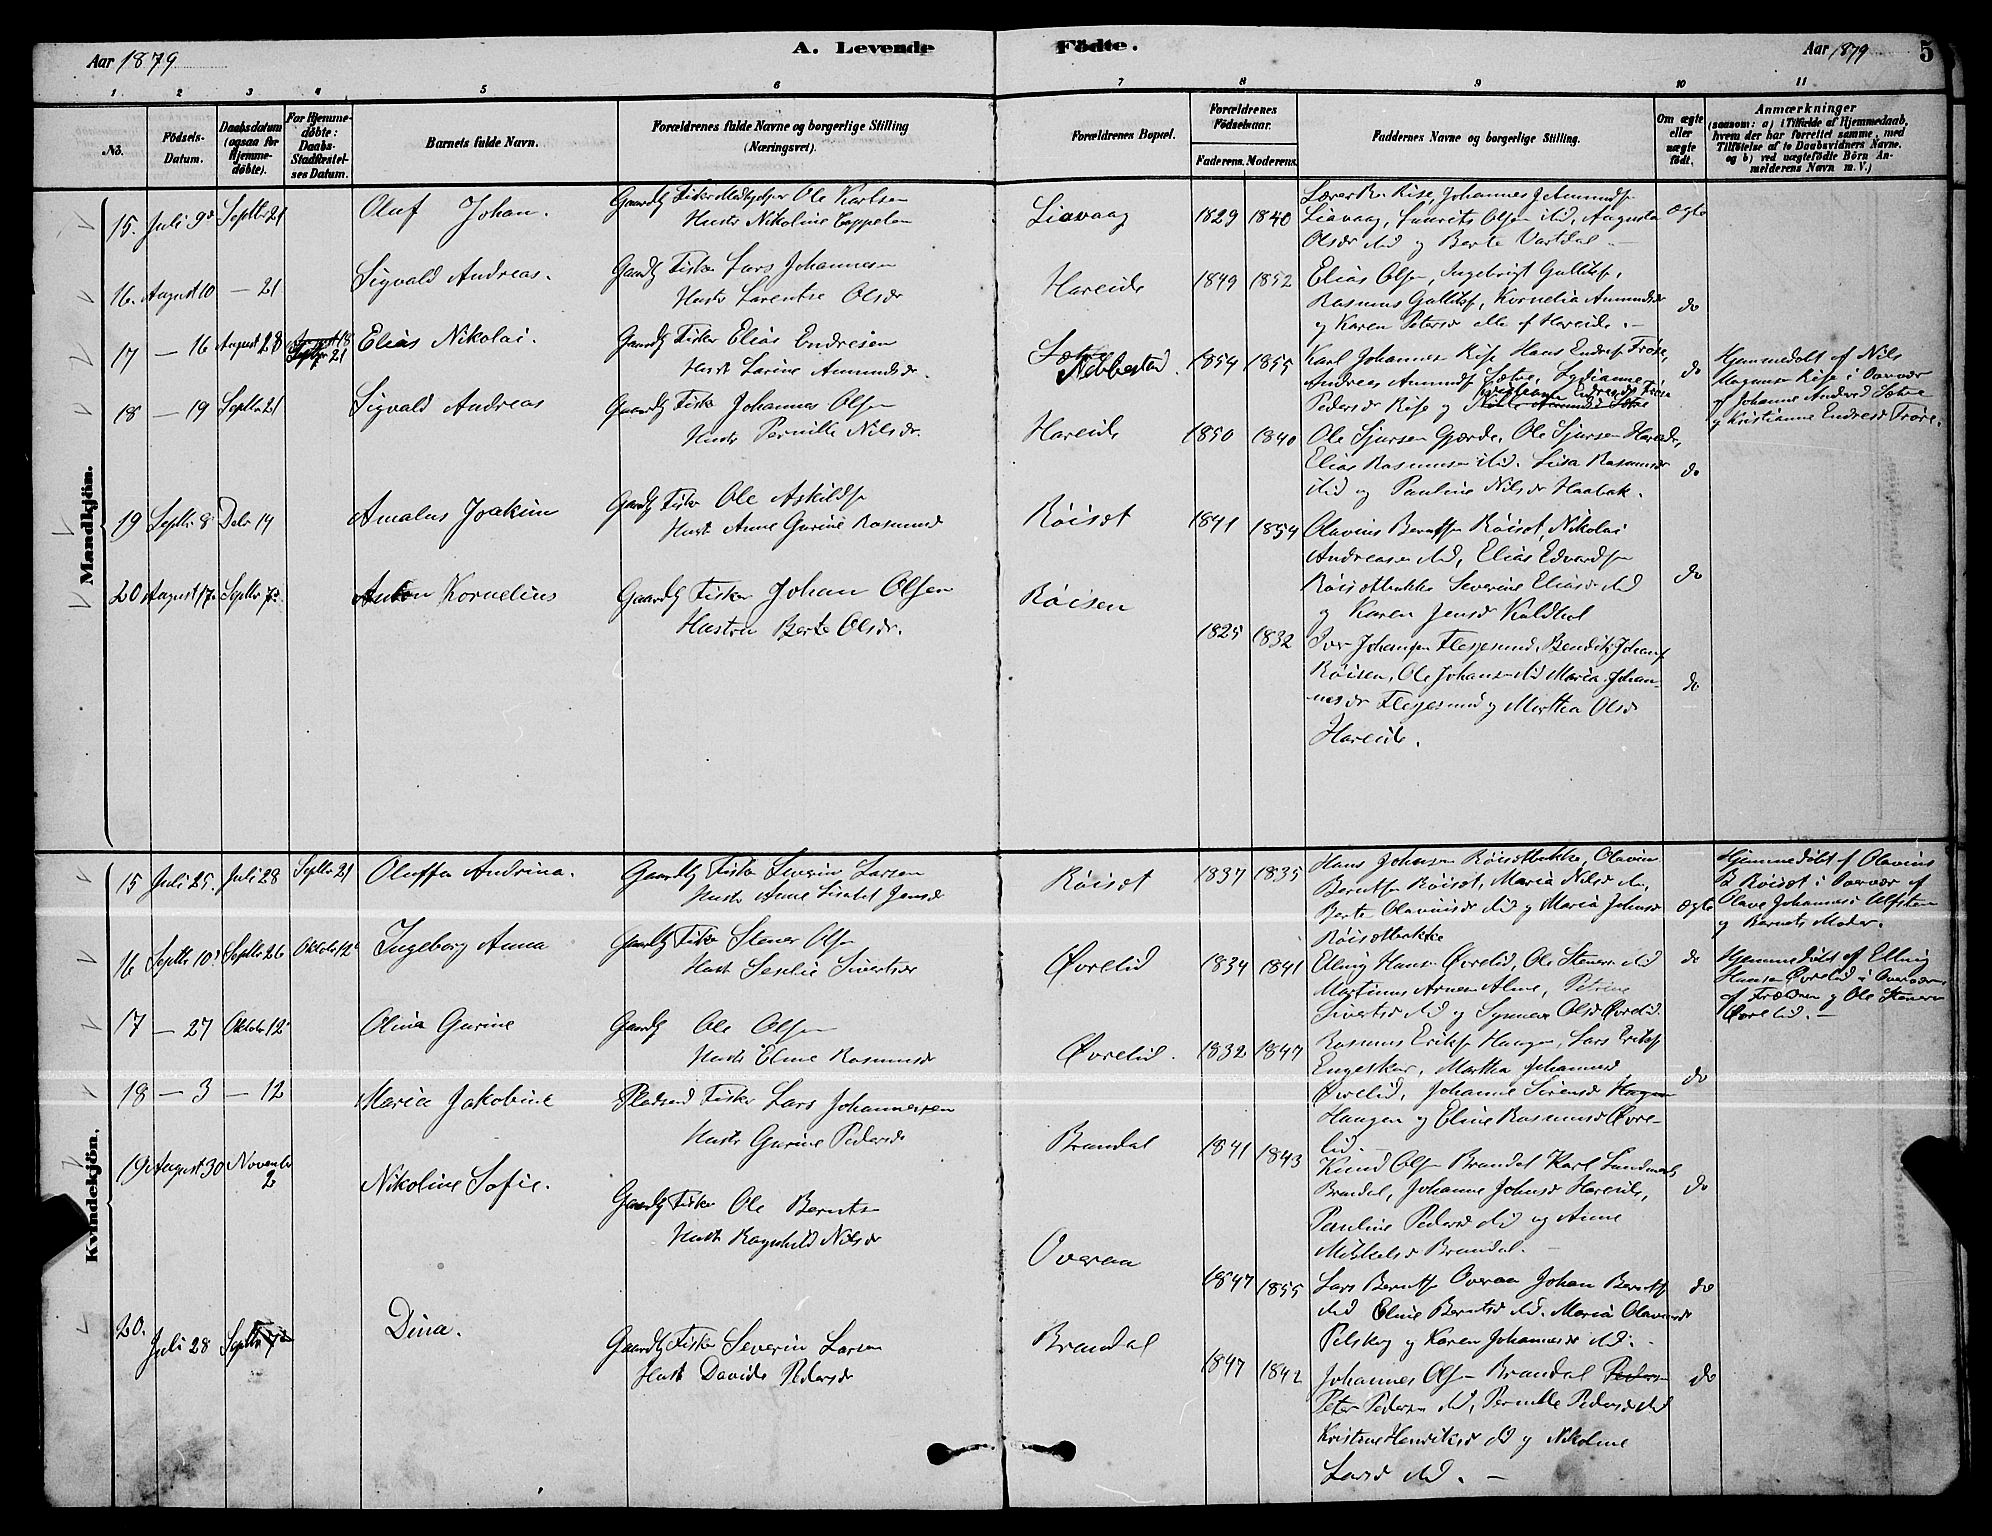 Aar 1879
A. Levende
Födte.
Aar 1879
5
1 2 3 4 5 6 7 8 9 10 11
No.
Födsels-
Datum.
Daabsdatum
(ogsaa for
Hjemme-
døbte).
For Hjemme-
døbte:
Daabs-
Stadfæstel-
ses Datum.
Barnets fulde Navn.
Forældrenes fulde Navne og borgerlige Stilling
(Næringsvei).
Forældrenes Bopæl.
Forældrenes
Födselsaar.
Faderens. Moderens.
Faddernes Navne og borgerlige Stilling.
Om ægte
eller
uægte
født.
Anmærkninger
(saasom: a) i Tilfælde af Hjemmedaab,
hvem der har forrettet samme, med
Tilföielse af to Daabsvidners Navne,
og b) ved uægtefödte Börn An-
melderens Navn m. V.)
Mandkjön.
15. Juli 9de Septbr 21 Oluf Johan. Gaardbr Fisker Ole Karlsen
Hustr Nikoline Cappelen
Liavaag 1829 1840
Rise, Johannes
Liavaag, Laurits Olsen ibid, Augusta
Olsdr ibid og Berte Vartdal
Ægte
16. August 10 — 21 Sigvald Andreas. Gaardbr Fisker Lars Johannesen
Hustr Larentse Olsdr
Hareide 1849 1852
Elias Olsen, Ingebrigt
Rasmus, Kornelia Amundsdr
og Karen Petersdr alle af Hareide. —
do
17 — 16 August 28 Septbr 21 Elias Nikolai. Gaardbr Fisker Elias Endresen
Hustr Larine Amundsdr.
Nebbestad. 1854 1855
Karl Johannes Rise Hans Endres Frøse,
Andreas Amunds Sætre, Lydianne
Pedersdr Rise og Kristianne Endresdr Frøse
do
Hjemmedøbt af Nils
Magnus Rise i Overvær
af Johanne Andrsd Sætre
og Kristianne Endresd Frøse.
18 — 19 Septbr 21 Sigvald Andreas Gaardbr Fisker Johannes Olsen
Hustr Pernille Nilsdr.
Hareide 1850 1840
Ole Sjursen Gjerde, Ole Sjursen Hareide,
Elias Rasmusen ibid. Lusa Rasmusdr
ibid og Pauline Nilsdr Haabak.
do
19 Septbr 8 Debr 14 Amalus Joakim Gaardbr Fisker Ole Askilds
Hustr Anne Gurine Rasmusd
Røiset 1841 1854
Olavius Berntsen Røiset, Nikolai
Andreasen ibid, Elias Edvardsen
Røisetbakke Severine Eliasdr ibid
og Karen Jensdr Kaldhol
do
20 August 17 Septbr 7de Anton Kornelius Gaardbr Fisker Johan Olsen
Hustru Berte Olsdr.
Røisen 1825 1832
Iver Johansen Flesjesund, Bendik Johans
Røisen, Ole Johansen ibid Maria Johan-
nesdr Flesjesund og Marthea Olsdr
Hareide.
do
Kvindekjön.
15 Juli 25. Juli 28 Septbr 21 Oluffa Andrina. Gaardbr Fisker Severin Larsen
Hustr Anne Lisabet Jensdr
Røiset 1837 1835
Hans Johnsen Røisetbakke, Olavius
Berntsen Røiset, Maria Nilsdr ibid,
Berte Olaviusdr ibid og Maria Johnsdr
Røisetbakke
Ægte
Hjemmedøbt af Olavius
B. Røiset i Overvær af
Olave Johannesd Ulfsten
og Barnets Moder.
16 Septbr 10de Septbr 26 Oktober 12te Ingeborg Anna Gaardbr Fisker Stener Olsen
Hustr Seselie Sivertsdr
Øvrelid 1834 1841
Elling Hansen Øvrelid, Ole Stenersen ibid
Martinus Arnesen Alme, Petrine
Sivertsdr ibid og Synneve Olsdr Øvrelid.
do
Hjemmedøbt af Elling
Hansen Øvrelid i Overvær
af Forældrene og Ole Stenersen
Øvrelid. —
17 — 27 Oktober 12te Olina Gurine Gaardbr Ole Olsen
Hustr Eline Rasmusdr
Øvrelid. 1832 1847
Rasmus Eriksen Haugen, Lars Eriksen
Engeskar, Martha Johannesd
Øvrelid, Johanne Sivensdr
Haugen og Eline Rasmusdr Øvre-
lid. —
do
18 — 3 — 12 Maria Jakobine Pladsmd Fisker Lars Johannessen
Hustr Gurine Pedersdr
Brandal 1841 1843
Knud Olsen Brandal Karl
Brandal, Johanne Johnsdr Hareide,
Pauline Pedersdr ibid og Anne
Mikkelsdr Brandal. —
do
19 August 30 Novembr
2
Nikoline Sofie. Gaardbr Fisker Ole Berntsen
Hustr Ragnhild Nilsdr
Overaa 1847 1855
Lars Berntsen Overaa Johan Berntsen
ibid Eline Berntsdr ibid. Maria Olavusdr
Pilskog og Karen Johannesdr ibid. —
do
20. Juli 28 Septbr 7de Dina. Gaardbr Fisker Severin Larsen
Hustr Davide Pedersdr
Brandal 1847 1842
Johannes Olsen Brandal Peders
Peter Pedersen ibid, Pernille Pedersdr ibid
Kristine Henriksdr ibid og Nikoline
Larsdr ibid. —
do